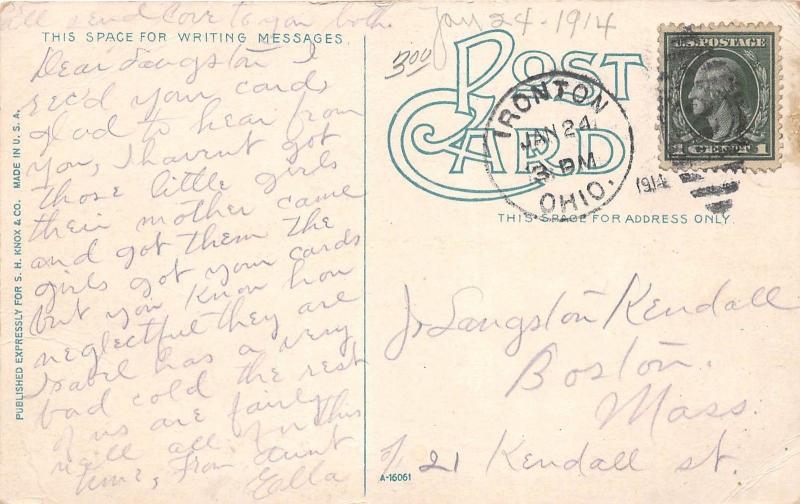 I'll send love to you both.
Jan 24 - 1914
THIS SPACE FOR WRITING MESSAGES
Dear Langston I
rec'd your cards
glad to hear from
you, I havent got
those little girls
their mother came
and got them the
girls got your cards
but you know how
neglectful they are
Isabel has a very
bad cold the rest
of us are fairly
well all for this
time, from Aunt
Ella
PUBLISHED EXPRESSLY FOR S. H. KNOX & CO. MADE IN U. S. A.
3.00
POST
CARD
IRONTON
JAN 24
3 PM
OHIO.
1914
U.S. POSTAGE
1 CENT 1
THIS SPACE FOR ADDRESS ONLY.
J. Langston Kendall
Boston.
Mass.
21 Kendall st.
A-16061